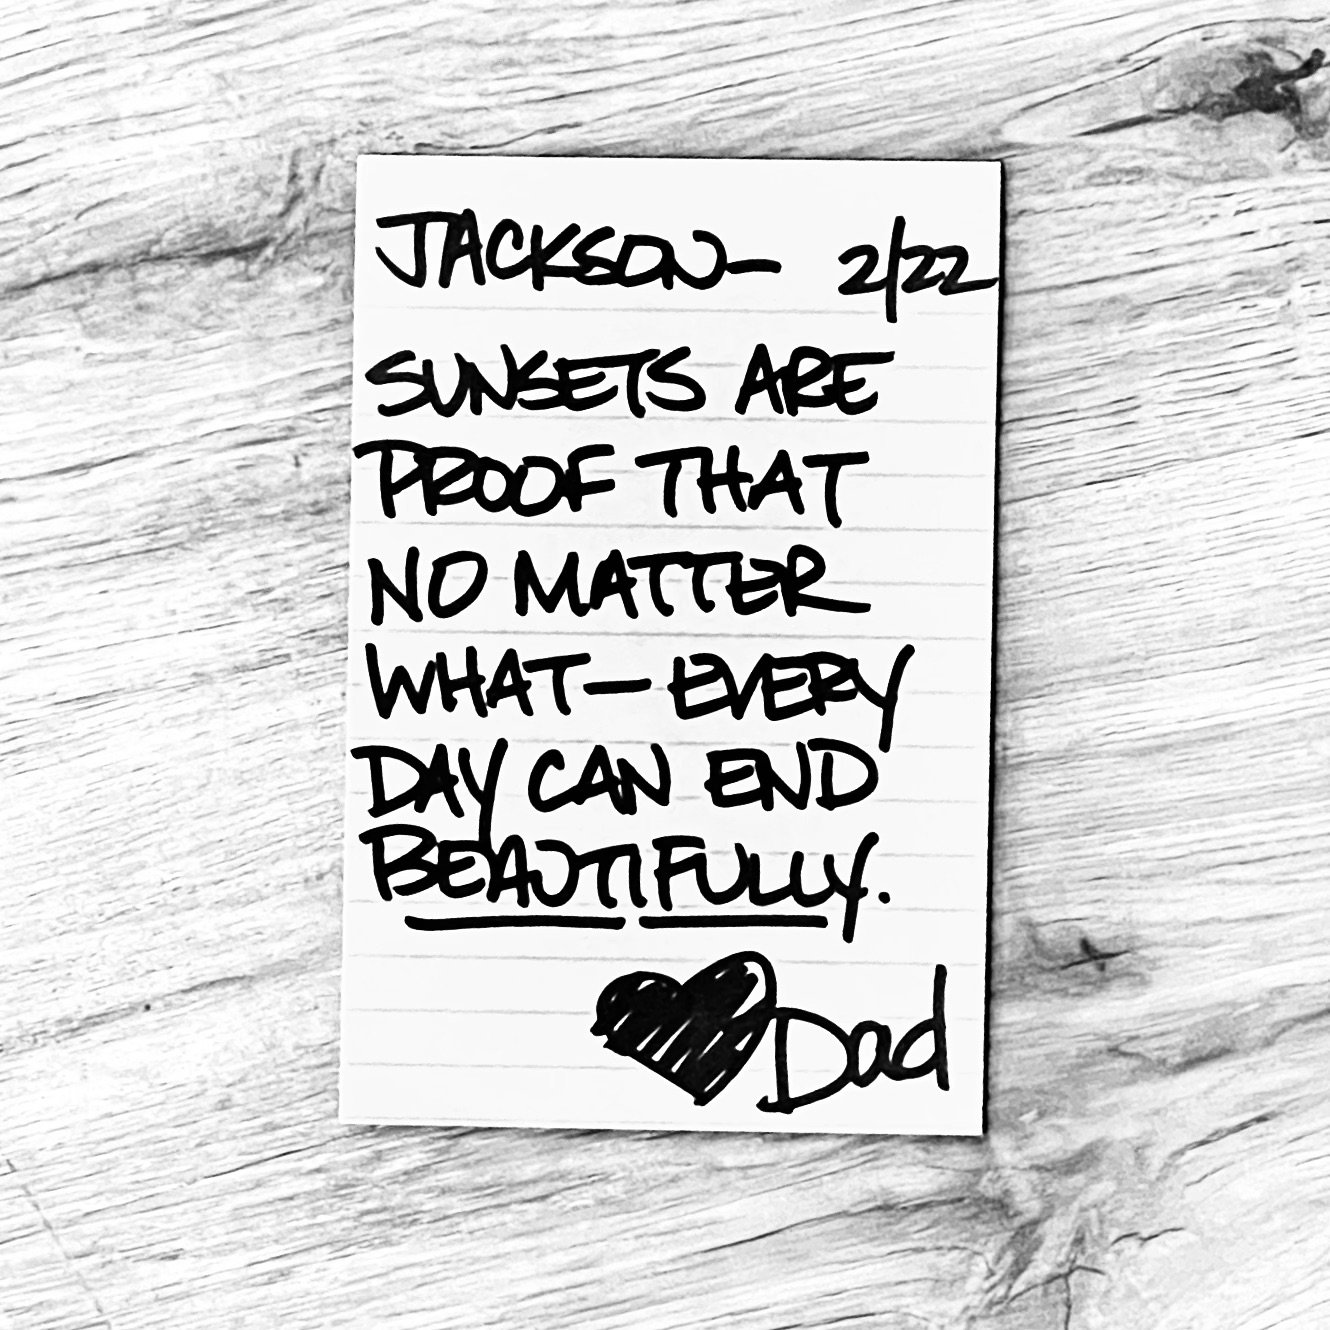 JACKSON— 2/22
SUNSETS ARE
PROOF THAT
NO MATTER
WHAT—EVERY
DAY CAN END
BEAUTIFULLY.
Dad